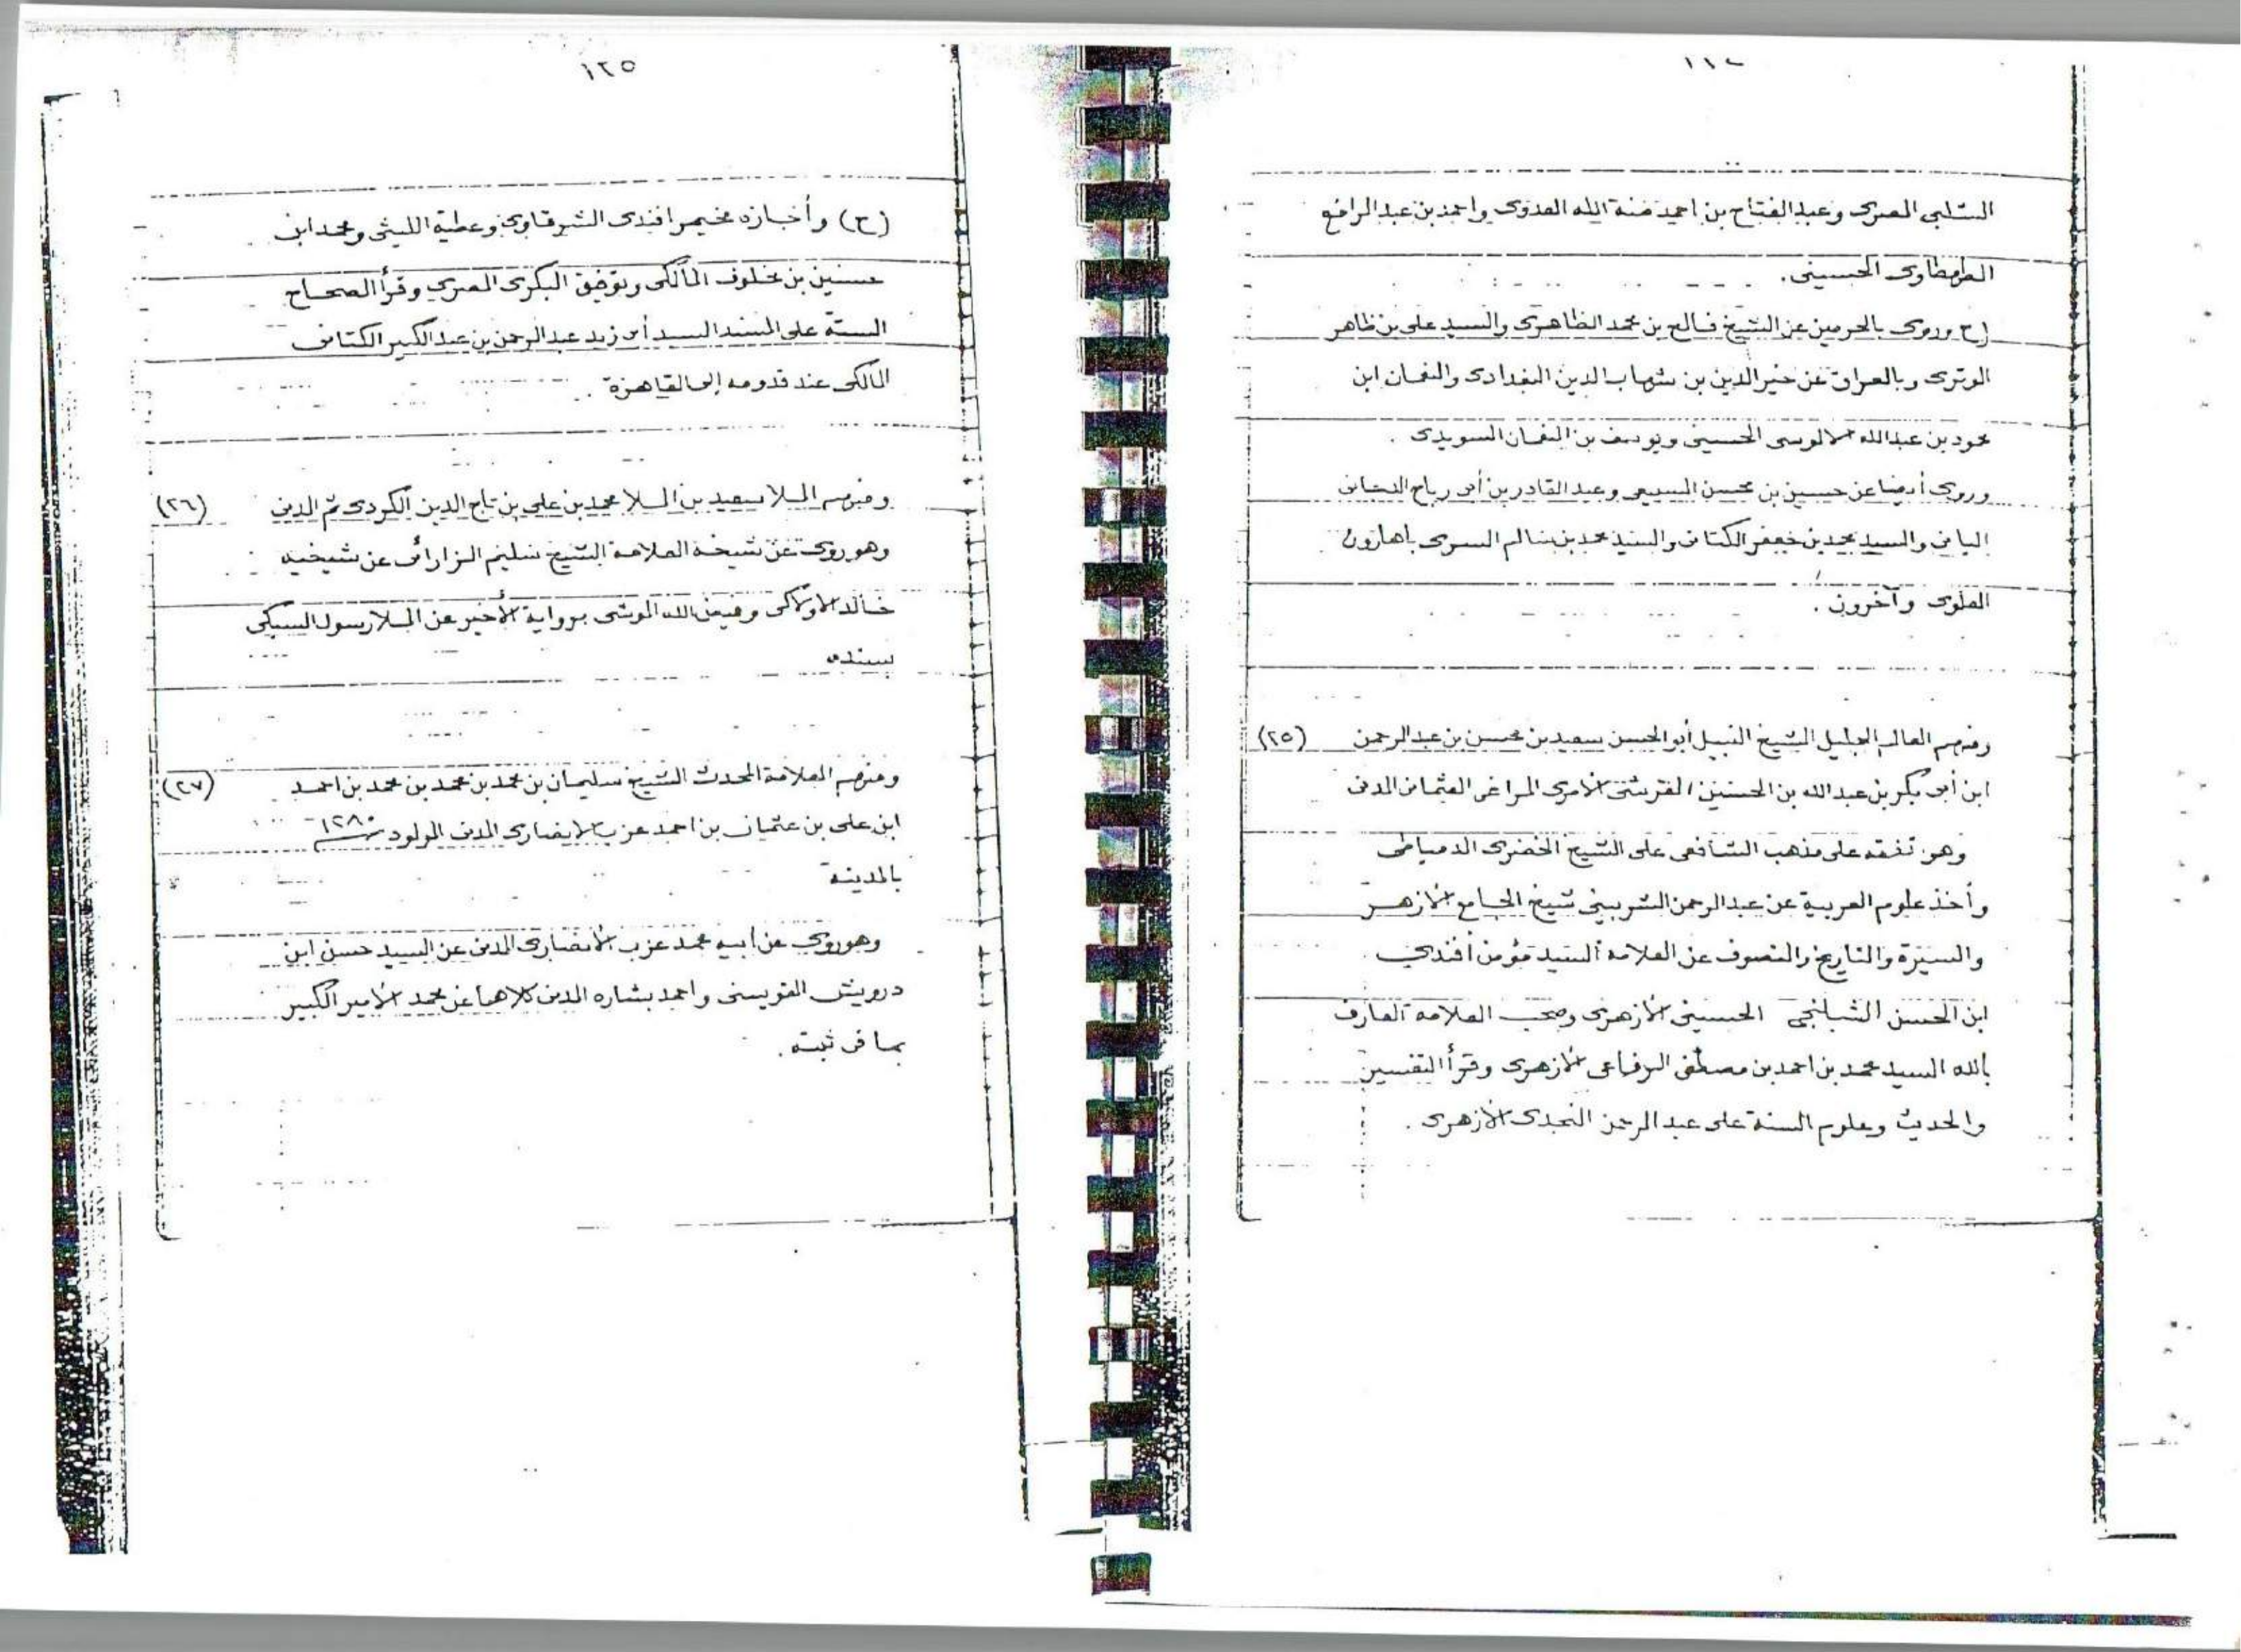 الشلبي المصرى وعبد الفتاح بن احمد منة الله العدوى واحمد بن عبد الرافع
الطهطاوى الحسينى.
(ح وروى بالحرمين عن الشيخ فالح بن محمد الظاهرى والسيد على بن ظاهر
الوترى وبالعراق عن خير الدين بن شهاب الدين البغدادى والنعمان ابن
محمود بن عبد الله الالوسى الحسينى ويوسف بن النعمان السويدى .
وروى أيضا عن حسين بن محسن السبيعى وعبد القادر بن أبى رباح
اليمانى والسيد محمد بن جعفر الكتانى والسيد محمد بن سالم السرى باهارون
العلوى وآخرون .
ومنهم العالم الجليل الشيخ النبيل أبو الحسن سعيد بن محسن بن عبد الرحمن (٢٥)
ابن أبى بكر بن عبد الله بن الحسنين القرشى الأموى المراغى العثمانى المدنى
وهو تفقه على مذهب الشافعى على الشيخ الخضرى الدمياطى
وأخذ علوم العربية عن عبد الرحمن الشربينى شيخ الجامع الأزهر
والسيرة والتاريخ والتصوف عن العلامة السيد مؤمن أفندى
ابن الحسن الشبلنجى الحسينى الأزهرى وصحب العلامة العارف
بالله السيد محمد بن احمد بن مصطفى الرفاعى الأزهرى وقرأ التفسير
والحديث وعلوم السنة على عبد الرحمن النجدى الأزهرى .
١٢٥
(ح) وأجازه مخيمر افندى الشرقاوى وعطية الليثى ومحمد ابن
حسنين بن مخلوف المالكى وتوفيق البكرى المصرى وقرأ الصحاح
الستة على المسند السيد أبى زيد عبد الرحمن بن عبد الكبير الكتانى
المالكى عند قدومه إلى القاهرة .
ومنهم الملا سعيد بن الملا محمد بن على بن تاج الدين الكردى ثم المدنى (٢٦)
وهو روى عن شيخه العلامة الشيخ سليم الزاراتى عن شيخيه
خالد الاولاكى وفيض الله الموشى برواية الأخير عن الملا رسول السبكى
بسنده
ومنهم العلامة المحدث الشيخ سليمان بن محمد بن محمد بن محمد بن احمد (٢٧)
ابن على بن عثمان بن احمد عزب الانصارى المدنى المولود سنة ١٢٨٠
بالمدينة
وهو روى عن أبيه محمد عزب الأنصارى المدنى عن السيد حسن ابن
درويش القويسنى واحمد بشاره المدنى كلاهما عن محمد الأمير الكبير
بما فى ثبته .